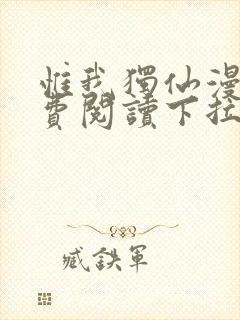 惟我獨仙漫
費閱讀下拉
臧鉄軍